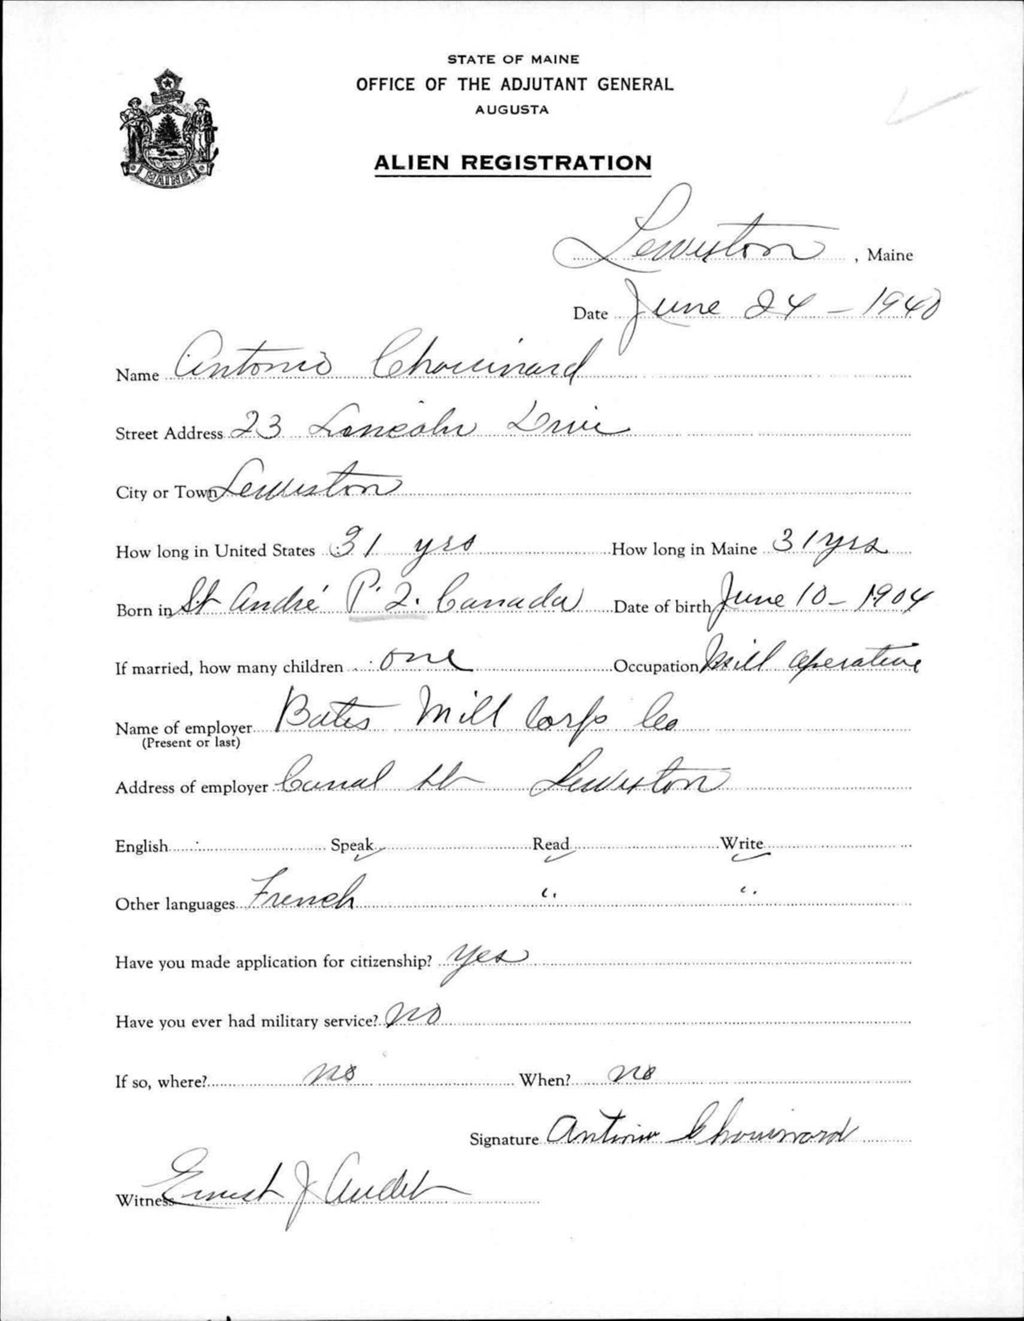 STATE OF MAINE
OFFICE OF THE ADJUTANT GENERAL
AUGUSTA
ALIEN REGISTRATION
MAINE
Lewiston, Maine
Date June 24 - 1940
Name Antonio Chouinard
Street Address 23 Lincoln Drive
City or Town Lewiston
How long in United States 31 yrs How long in Maine 31 yrs
Born in St André P.Q. Canada Date of birth June 10 - 1904
If married, how many children one Occupation Mill operative
Name of employer Bates Mill Corp Co
(Present or last)
Address of employer Canal St Lewiston
English Speak ✓ Read ✓ Write ✓
Other languages French " "
Have you made application for citizenship? Yes
Have you ever had military service? No
If so, where? no When? no
Signature Antonio Chouinard
Witness Ernest J Audet